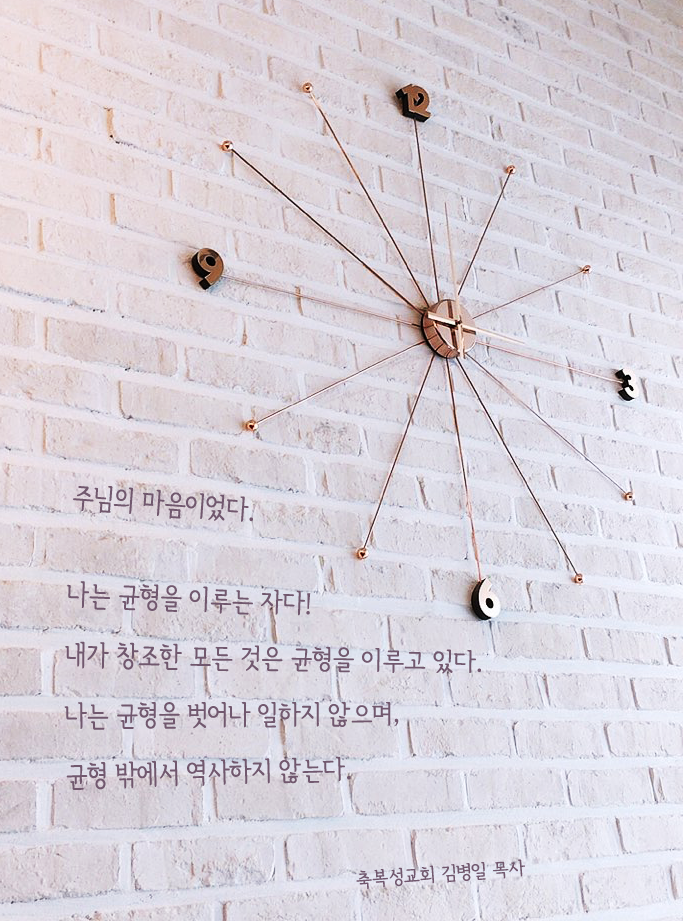 12
9
3
6
주님의 마음이었다.
나는 균형을 이루는 자다!
내가 창조한 모든 것은 균형을 이루고 있다.
나는 균형을 벗어나 일하지 않으며,
균형 밖에서 역사하지 않는다.
축복성교회 김병일 목사